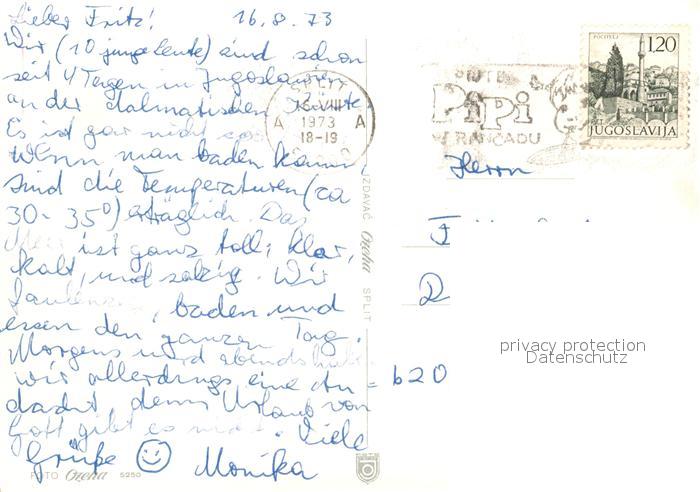 Lieber Fritz! 16.8.73
Wir (10 junge Leute) sind schon
seit 4 Tagen in Jugoslawien
an der dalmatischen Küste.
Es ist gar nicht
Wenn man baden kann,
sind die Temperaturen (ca
30 - 35°) erträglich. Das
Meer ist ganz toll; klar,
kalt, und salzig. Wir
faulenzen, baden und
essen den ganzen Tag.
Morgens und abends
wir allerdings eine An =
dacht denn Urlaub von
Gott gibt es nicht. Viele
Grüße ☺ Monika
FOTO Ozeha 5250
IZDAVAČ Ozeha SPLIT
SPLIT
16.VIII
1973
18-19
A A
PiPi
FRANCADU
POČITELJ
1,20
JUGOSLAVIJA
Herrn
F
D
620
privacy protection
Datenschutz